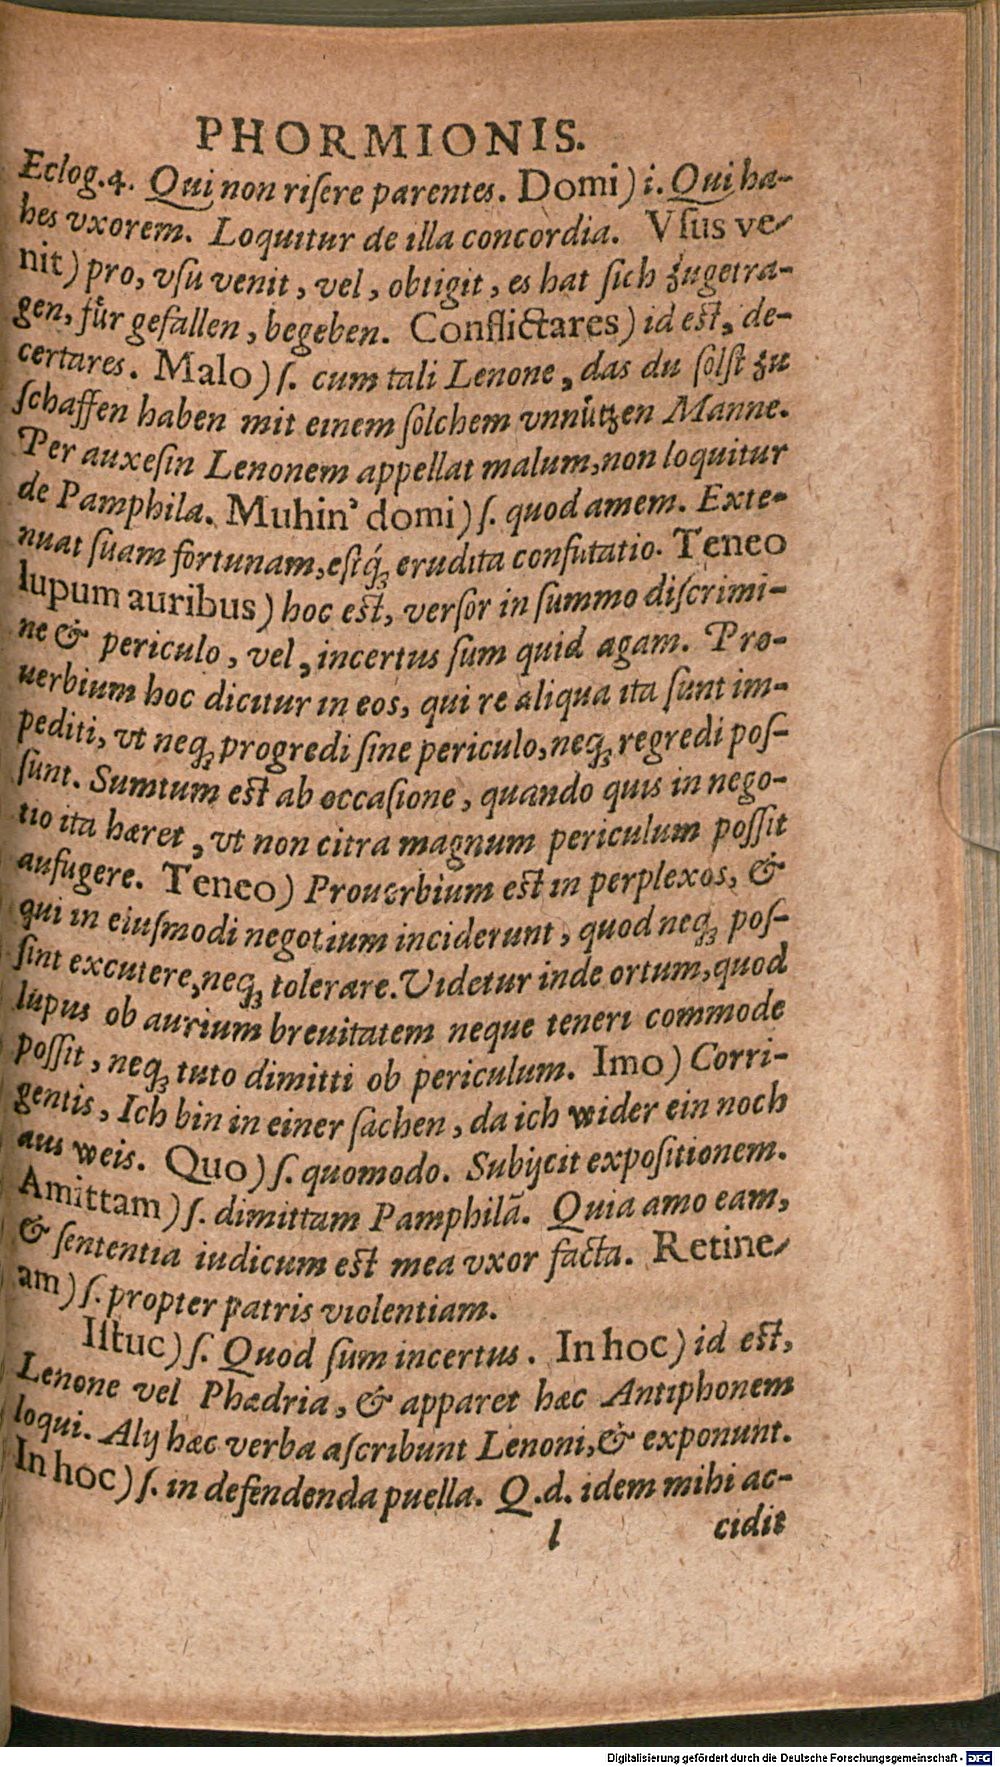 PHORMIONIS.
Eclog.4. Qui non riſere parentes. Domi) i. Qui ha-
bes vxorem. Loquitur de illa concordia. Vſus ve-
nit) pro, vſu venit, vel, obtigit, es hat ſich zugetra-
gen, fuͤr gefallen, begeben. Conflictares) id est, de-
certares. Malo) ſ. cum tali Lenone, das du ſolſt zu
ſchaffen haben mit einem ſolchem vnnuͤtzen Manne.
Per auxeſin Lenonem appellat malum, non loquitur
de Pamphila. Muhin' domi) ſ. quod amem. Exte-
nuat ſuam fortunam, eſtq́ꝫ erudita confutatio. Teneo
lupum auribus) hoc est, verſor in ſummo diſcrimi-
ne & periculo, vel, incertus ſum quid agam. Pro-
uerbium hoc dicitur in eos, qui re aliqua ita ſunt im-
pediti, vt neqꝫ progredi ſine periculo, neqꝫ regredi poſ-
ſunt. Sumtum est ab occaſione, quando quis in nego-
tio ita hæret, vt non citra magnum periculum poſſit
aufugere. Teneo) Prouerbium est in perplexos, &
qui in eiuſmodi negotium inciderunt, quod neqꝫ poſ-
ſint excutere, neqꝫ tolerare. Videtur inde ortum, quod
lupus ob aurium breuitatem neque teneri commode
poſſit, neqꝫ tuto dimitti ob periculum. Imo) Corri-
gentis, Ich bin in einer ſachen, da ich wider ein noch
aus weis. Quo) ſ. quomodo. Subijcit expoſitionem.
Amittam) ſ. dimittam Pamphilã. Quia amo eam,
& ſententia iudicum est mea vxor facta. Retine-
am) ſ. propter patris violentiam.
Iſtuc) ſ. Quod ſum incertus. In hoc) id est,
Lenone vel Phædria, & apparet hæc Antiphonem
loqui. Alij hæc verba aſcribunt Lenoni, & exponunt.
In hoc) ſ. in defendenda puella. Q.d. idem mihi ac-
l cidit
Digitalisierung gefördert durch die Deutsche Forschungsgemeinschaft - DFG